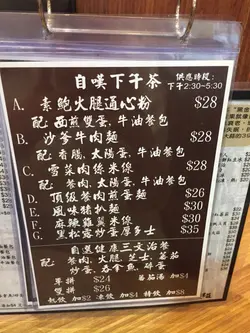 自嘆下午茶
供應時段:
下午2:30-5:30
A. 素鮑火腿通心粉 $28
配: 西煎雙蛋, 牛油餐包
B. 沙爹牛肉麵 $28
配: 香腸, 太陽蛋, 牛油餐包
C. 雪菜肉絲米線 $28
配: 餐肉, 太陽蛋, 牛油餐包
D. 頂級餐肉煎蛋麵 $26
E. 風味豬扒麵 $30
F. 麻辣雞翼米線 $30
G. 黑松露炒蛋厚多士 $35
自選健康三文治餐
配: 餐肉, 火腿, 芝士, 蕃茄
炒蛋, 吞拿魚, 磚蛋
單拼 $24
蕃茄湯 加$4
雙拼 $26
熱飲 加$2 凍飲 加$4 特飲 加$8